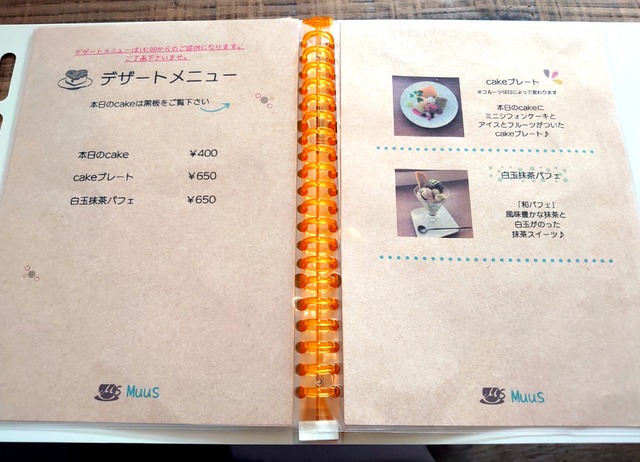 デザートメニューは14:00からのご提供になります。
ご了承下さいませ。
デザートメニュー
本日のcakeは黒板をご覧下さい
本日のcake ¥400
cakeプレート ¥650
白玉抹茶パフェ ¥650
Muus
cakeプレート
※フルーツは日によって変わります
本日のcakeに
ミニシフォンケーキと
アイスとフルーツがついた
cakeプレート♪
白玉抹茶パフェ
「和パフェ」
風味豊かな抹茶と
白玉がのった
抹茶スイーツ♪
Muus